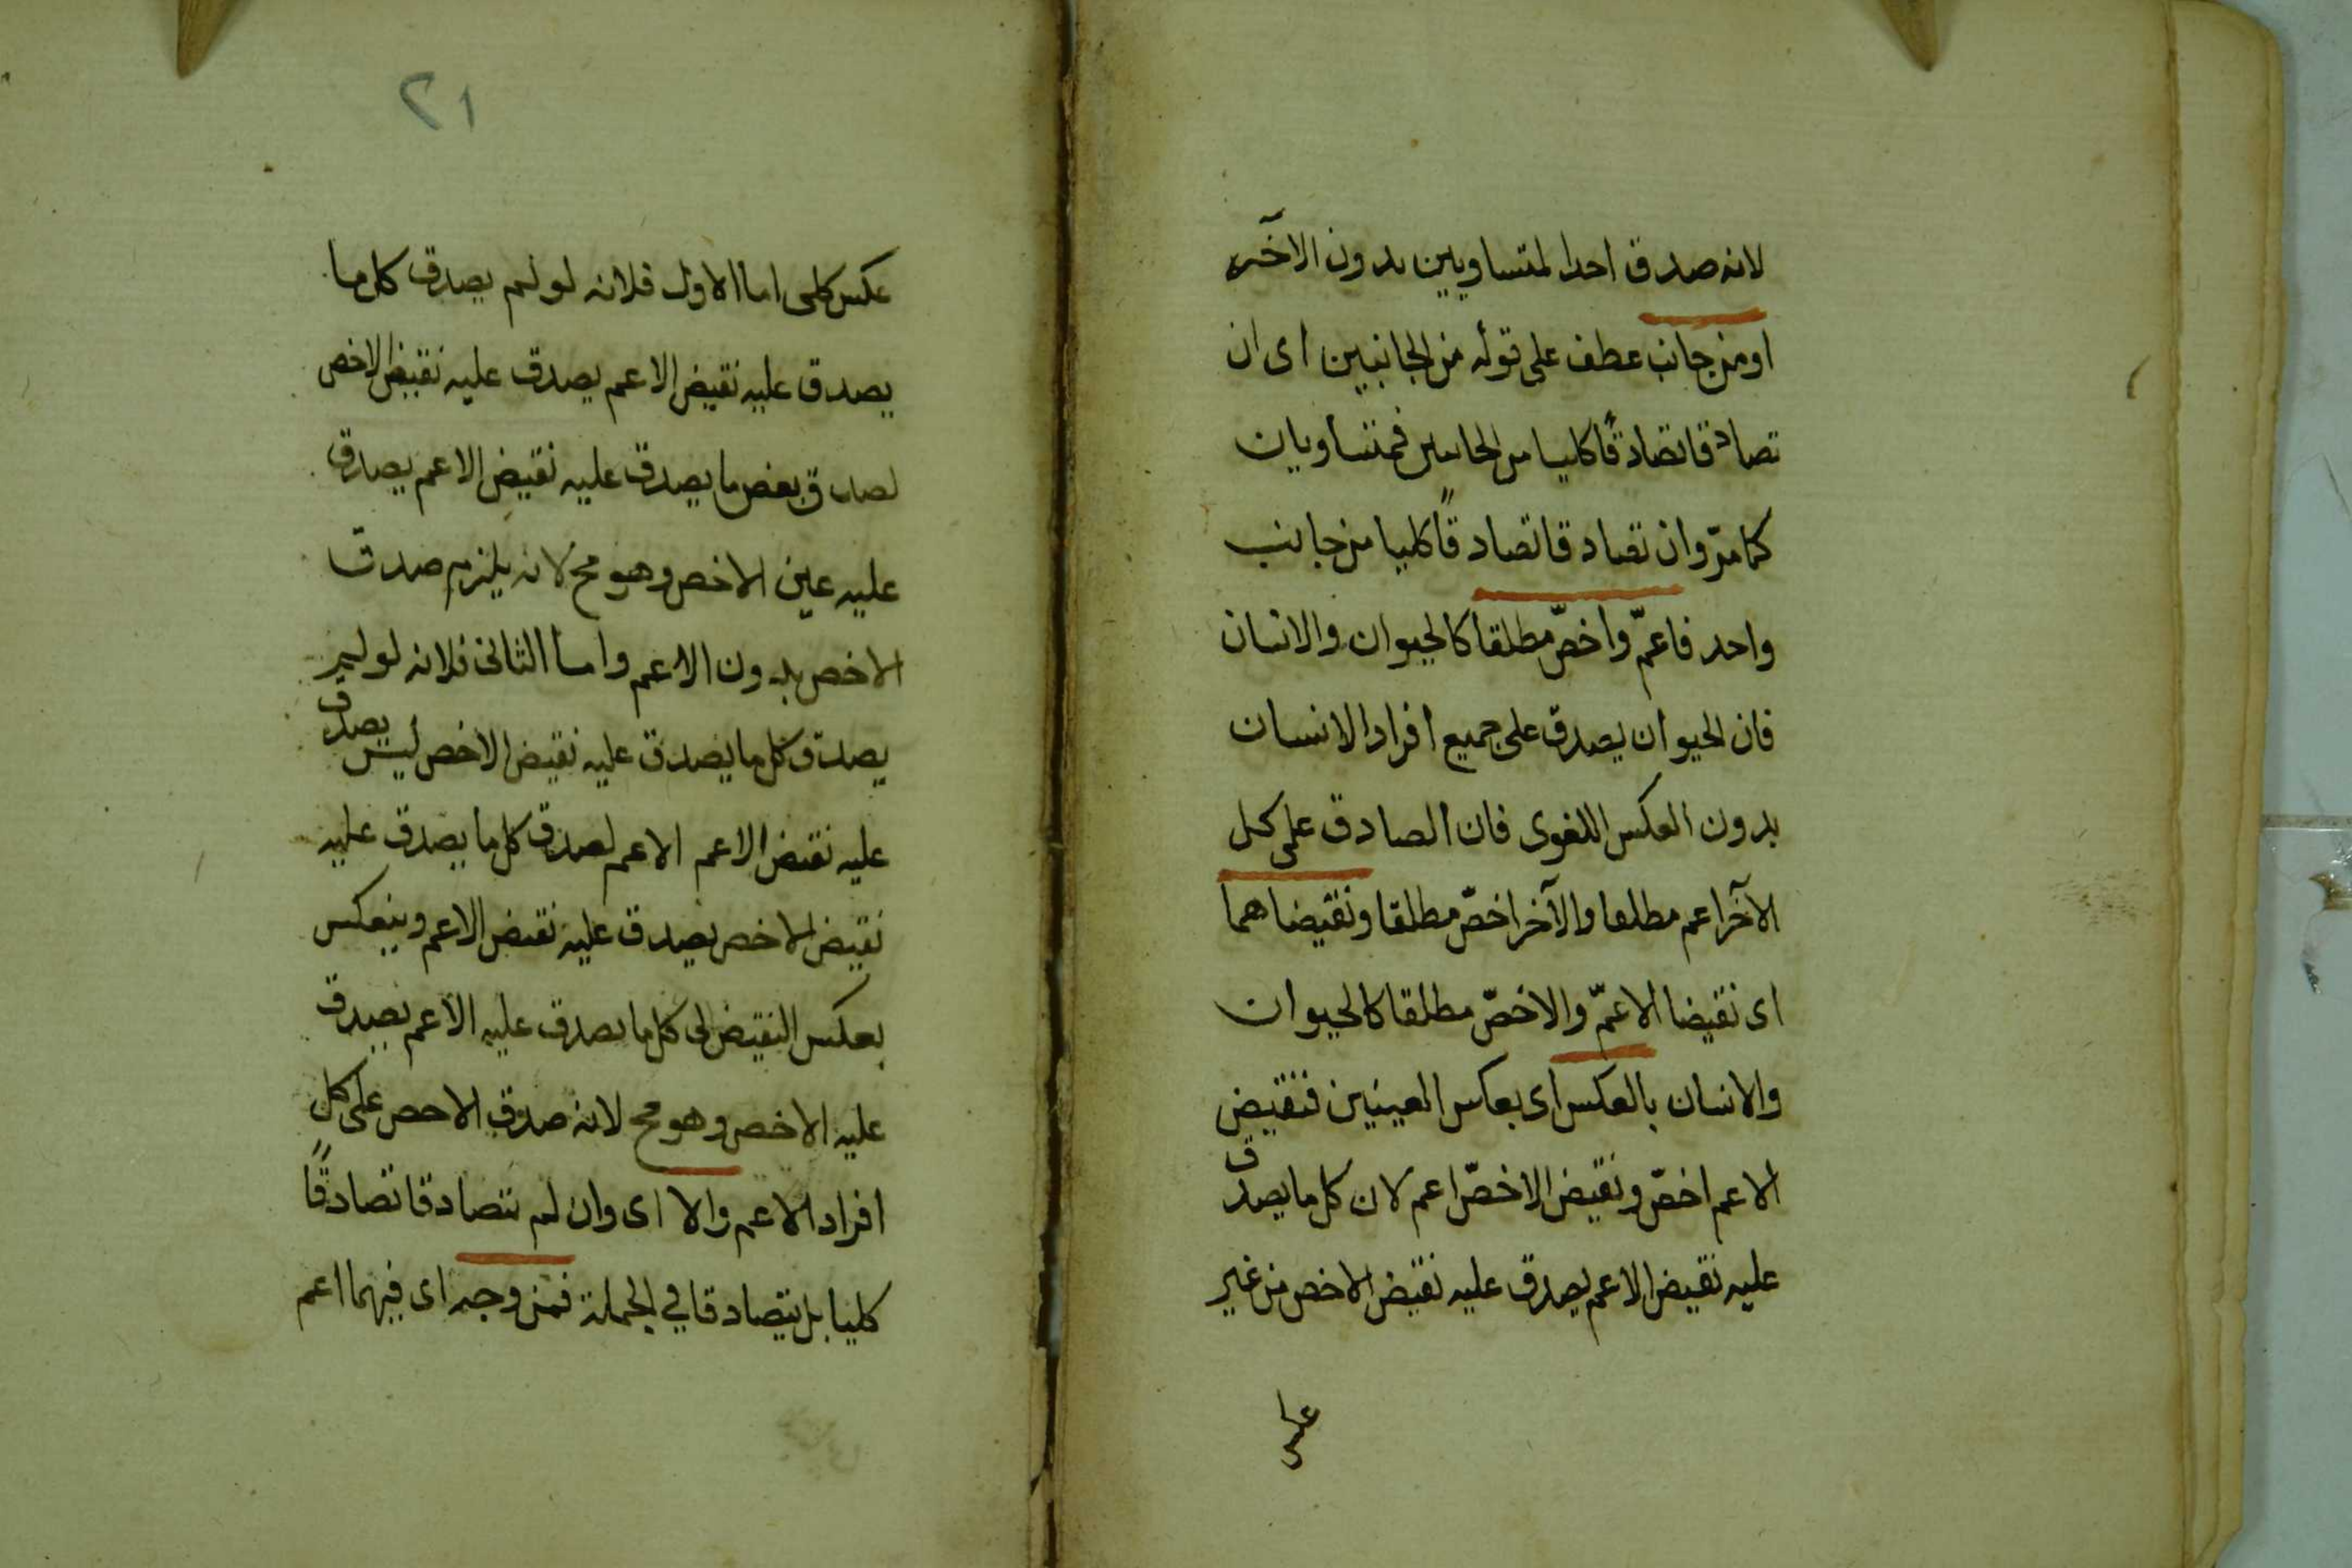 لانه صدق احدا لمتساويين بدون الاخر
او من جانب عطف على قوله من الجانبين اى ان
تصادقا تصادقًا كليا من الجانبين فمتساويان
كما مرّ وان تصادقا تصادقًا كليا من جانب
واحد فاعمّ واخصّ مطلقا كالحيوان والانسان
فان الحيوان يصدق على جميع افراد الانسان
بدون العكس اللغوى فان الصادق على كل
الآخر اعم مطلقا والآخر اخصّ مطلقا ونقيضاهما
اى نقيضا الاعمّ والاخصّ مطلقا كالحيوان
والانسان بالعكس اى بعكس العينين فنقيض
الاعم اخصّ ونقيض الاخصّ اعم لان كل ما يصدق
عليه نقيض الاعم يصدق عليه نقيض الاخص من غير
٢١
عكس كلى اما الاول فلانه لو لم يصدق كل ما
يصدق عليه نقيض الاعم يصدق عليه نقيض الاخص
لصدق بعض ما يصدق عليه نقيض الاعم يصدق
عليه عين الاخص وهو مح لانه يلزم صدق
الاخص بدون الاعم واما الثانى فلانه لو لم
يصدق كل ما يصدق عليه نقيض الاخص ليس يصدق
عليه نقيض الاعم الاعم لصدق كل ما يصدق عليه
نقيض الاخص يصدق عليه نقيض الاعم وينعكس
بعكس النقيض الى كل ما يصدق عليه الاعم يصدق
عليه الاخص وهو مح لانه صدق الاخص على كل
افراد الاعم والا اى وان لم يتصادقا تصادقًا
كليا بل يتصادقا في الجملة فمن وجه اى فيهما اعم